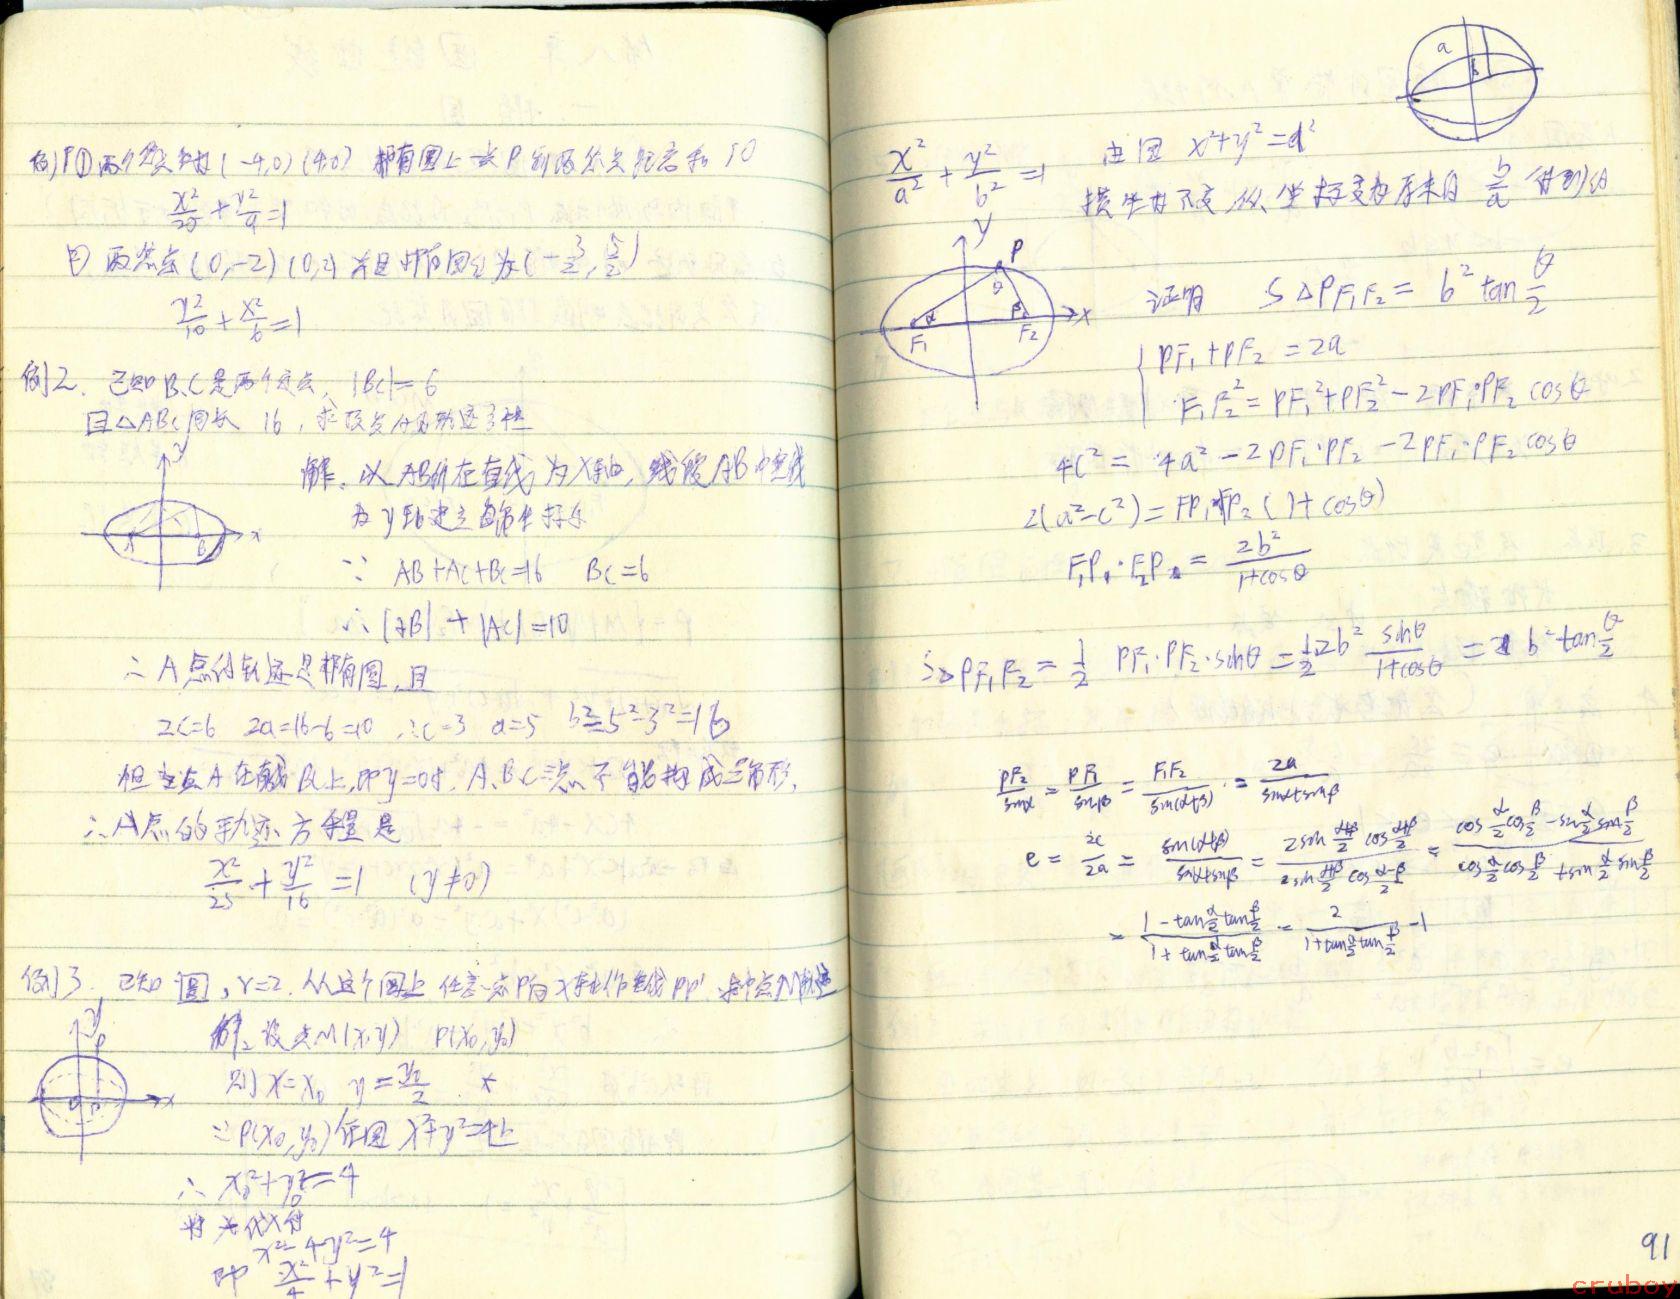 例1 ① 两个焦点坐标 (-4,0) (4,0) 椭圆上一点P到两焦点距离和 10
x²/25 + y²/9 = 1
② 两焦点 (0,-2) (0,2) 并且椭圆过 (-3/2, 5/2)
y²/10 + x²/6 = 1
例2. 已知B、C是两个定点, |BC|=6
且△ABC周长 16, 求顶点A的轨迹方程
y
x
B
解: 以AB所在直线为X轴, 线段AB中垂线
为y轴建立直角坐标系
∵ AB+AC+BC=16 BC=6
∴ |AB| + |AC| =10
∴ A点的轨迹是椭圆, 且
2c=6 2a=16-6=10 ∴c=3 a=5 b²=5²-3²=16
但当点A在直线BC上, 即y=0时, A、B、C三点不能构成三角形.
∴ A点的轨迹方程是
x²/25 + y²/16 = 1 (y≠0)
例3. 已知圆, r=2. 从这个圆上任意一点P向x轴作垂线PP'. 求中点M轨迹
y
P
x
解: 设点M(x,y) P(x₀,y₀)
则 x=x₀ y=y₀/2
∵ P(x₀,y₀)在圆 x²+y²=4上
∴ x₀²+y₀²=4
x²+4y²=4
即 x²/4 + y² =1
a
b
x²/a² + y²/b² =1 由圆 x²+y²=a²
横坐标不变, 纵坐标变为原来的 b/a 得到的
y
P
θ
α β
F₁ F₂
x
证明 S△PF₁F₂ = b² tan θ/2
{ PF₁+PF₂ =2a
F₁F₂² = PF₁²+PF₂² -2PF₁·PF₂ cosθ
4c² = 4a² -2PF₁·PF₂ -2PF₁·PF₂ cosθ
2(a²-c²) = FP₁·FP₂ (1+cosθ)
F₁P·F₂P = 2b²/(1+cosθ)
S△PF₁F₂ = 1/2 PF₁·PF₂·sinθ = 1/2 2b² sinθ/(1+cosθ) = b² tan θ/2
PF₂/sinα = PF₁/sinβ = F₁F₂/sin(α+β) = 2a/(sinα+sinβ)
e = 2c/2a = sin(α+β)/(sinα+sinβ) = (2sin (α+β)/2 cos (α+β)/2)/(2sin (α+β)/2 cos (α-β)/2) = (cos α/2 cos β/2 - sin α/2 sin β/2)/(cos α/2 cos β/2 + sin α/2 sin β/2)
= (1 - tan α/2 tan β/2)/(1 + tan α/2 tan β/2) = 2/(1+tan α/2 tan β/2) -1
91
cruboy